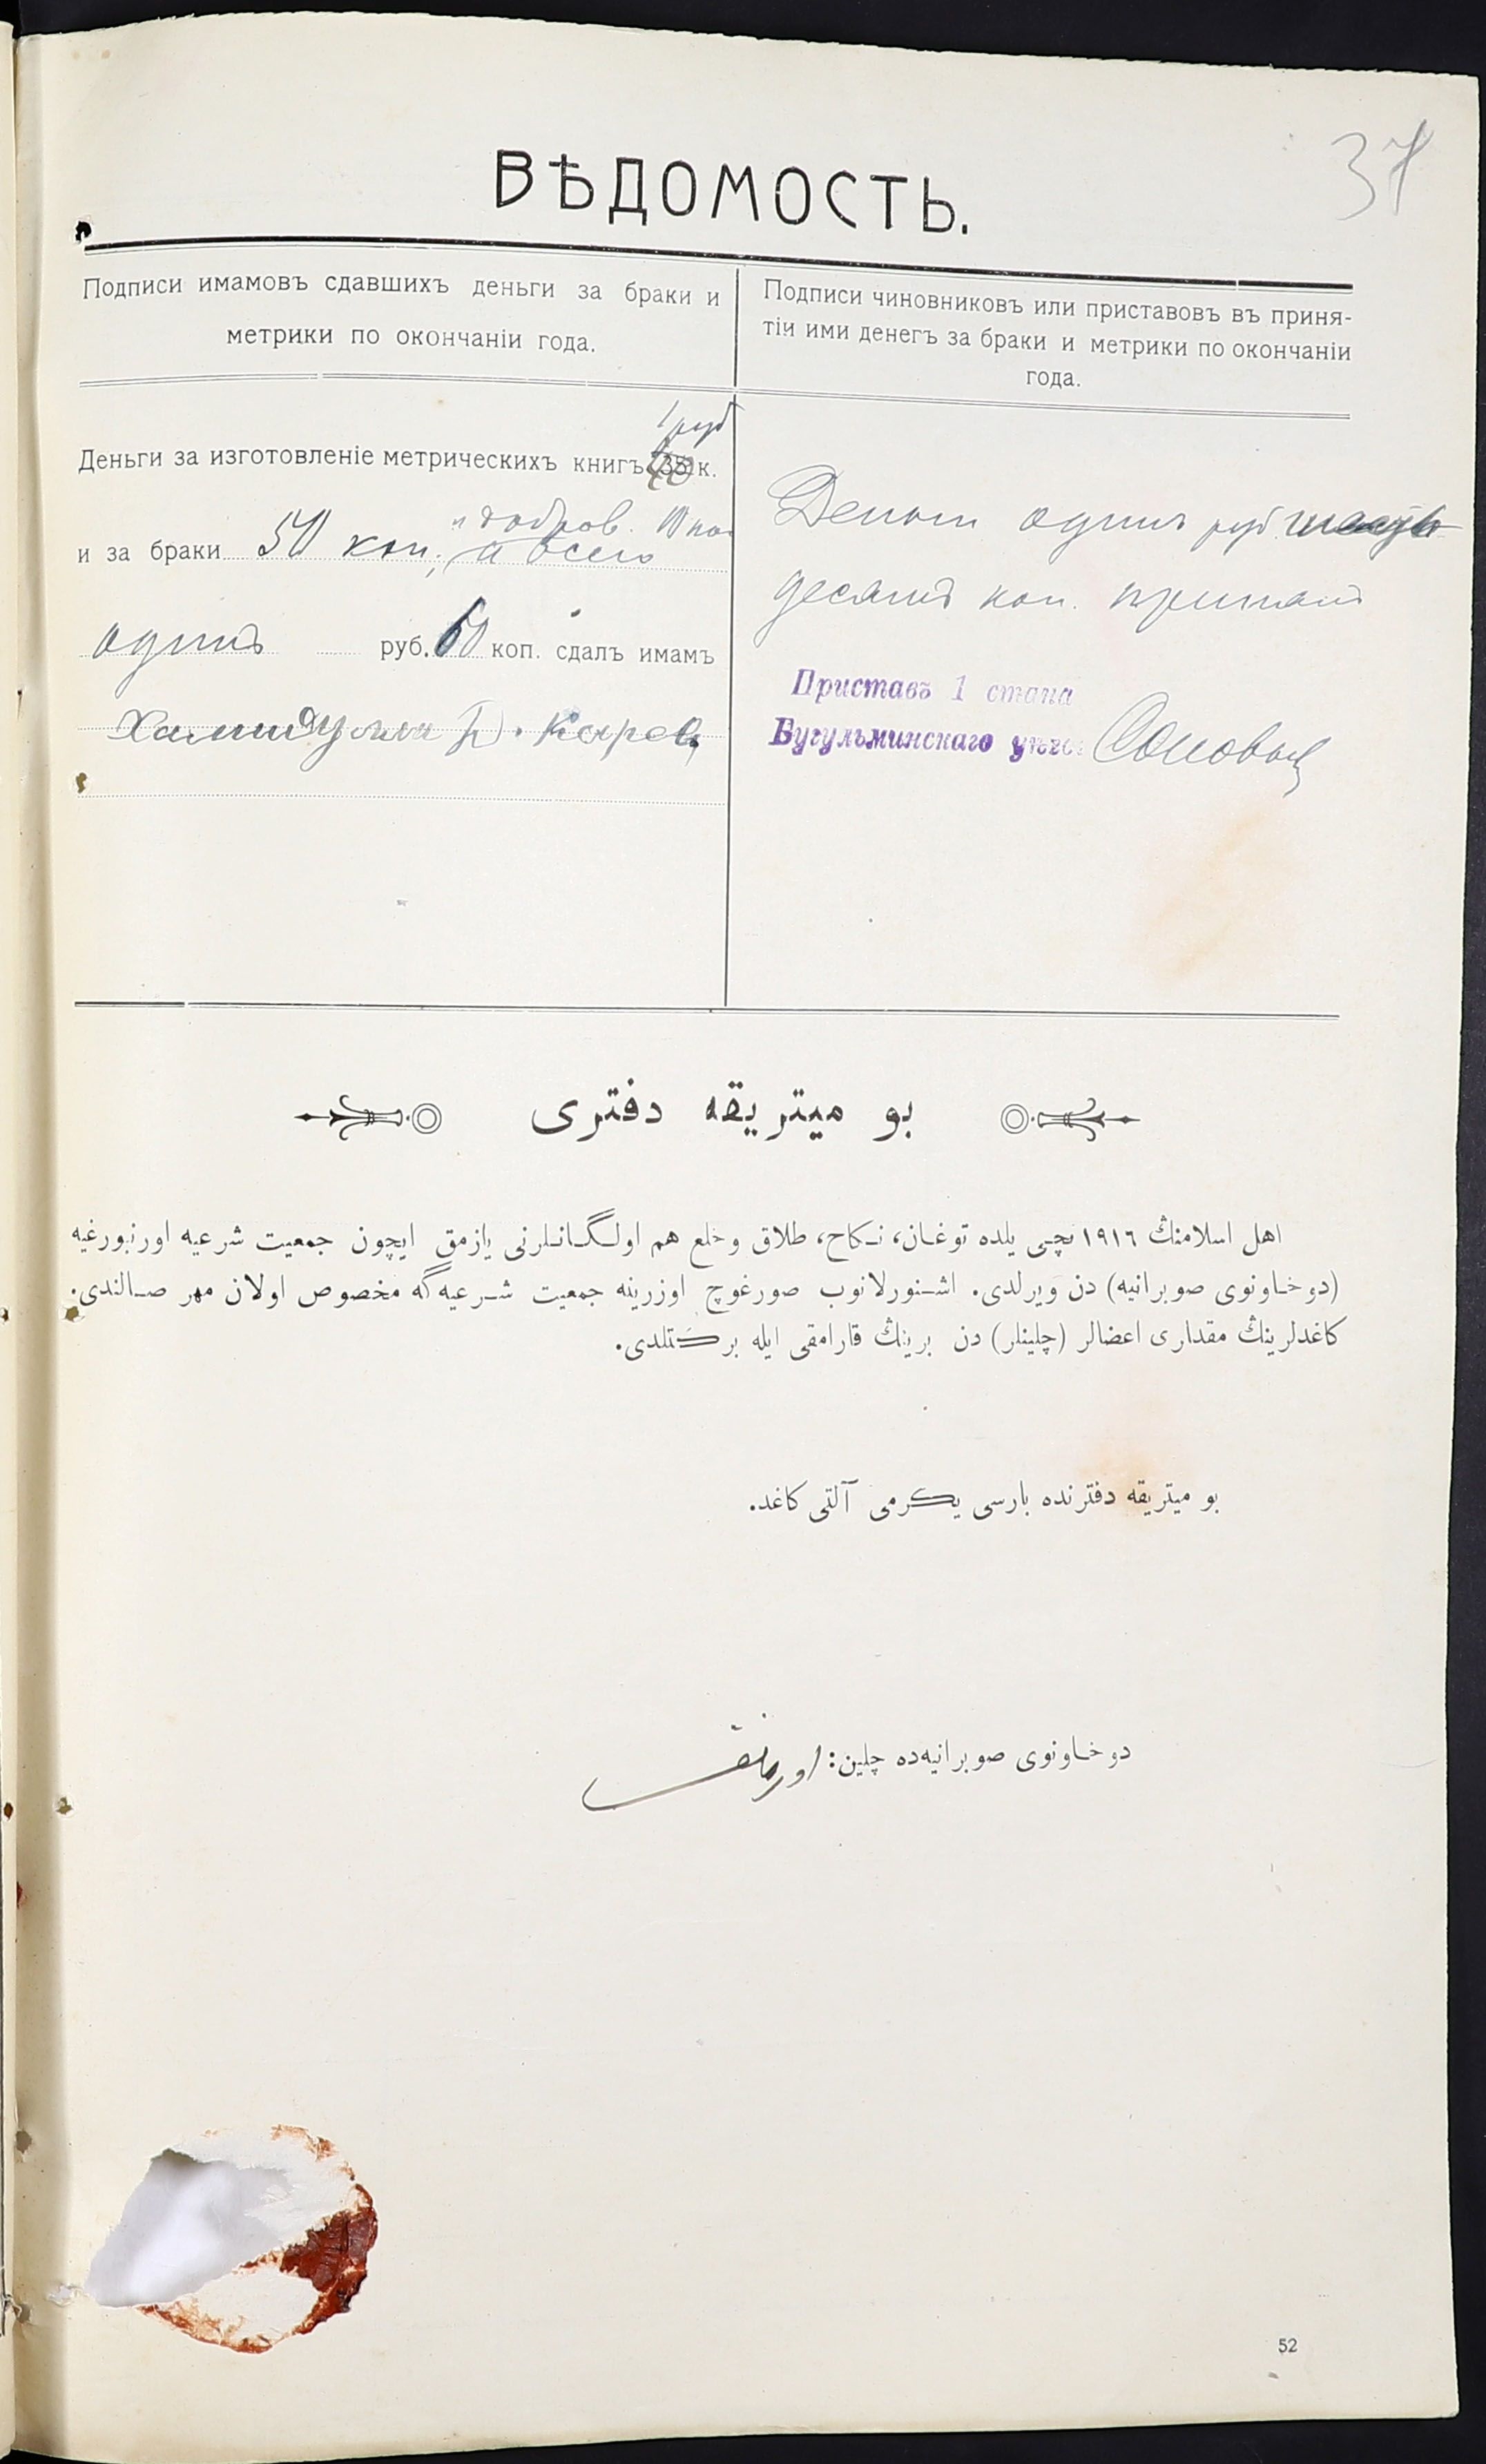 37
ВѢДОМОСТЬ.
Подписи имамовъ сдавшихъ деньги за браки и
метрики по окончаніи года.
Подписи чиновниковъ или приставовъ въ приня-
тіи ими денегъ за браки и метрики по окончаніи
года.
1 руб
Деньги за изготовленіе метрическихъ книгъ к.
и добров. 10 коп
и за браки 50 коп., а всего
одинъ руб. 60 коп. сдалъ имамъ
Хамидулла
Деньги одинъ руб. шесть
десятъ коп. принялъ
Приставъ 1 стана
Бугульминскаго уѣзда
بو ميتريقه دفترى
اهل اسلامنڭ ١٩١٦ نچى يلده توغان، نكاح، طلاق وخلع هم اولگانلرنى يازمق ايچون جمعيت شرعيه اورنبورغيه
(دوخاونوى صوبرانيه) دن ويرلدى. اشنورلانوب صورغوچ اوزرينه جمعيت شرعيه‌گه مخصوص اولان مهر صالندى.
كاغدلرينڭ مقدارى اعضالر (چلينلر) دن برينڭ قارامقى ايله بركتلدى.
بو ميتريقه دفترنده بارسى يكرمى آلتى كاغد.
دوخاونوى صوبرانيه‌ده چلين:
52